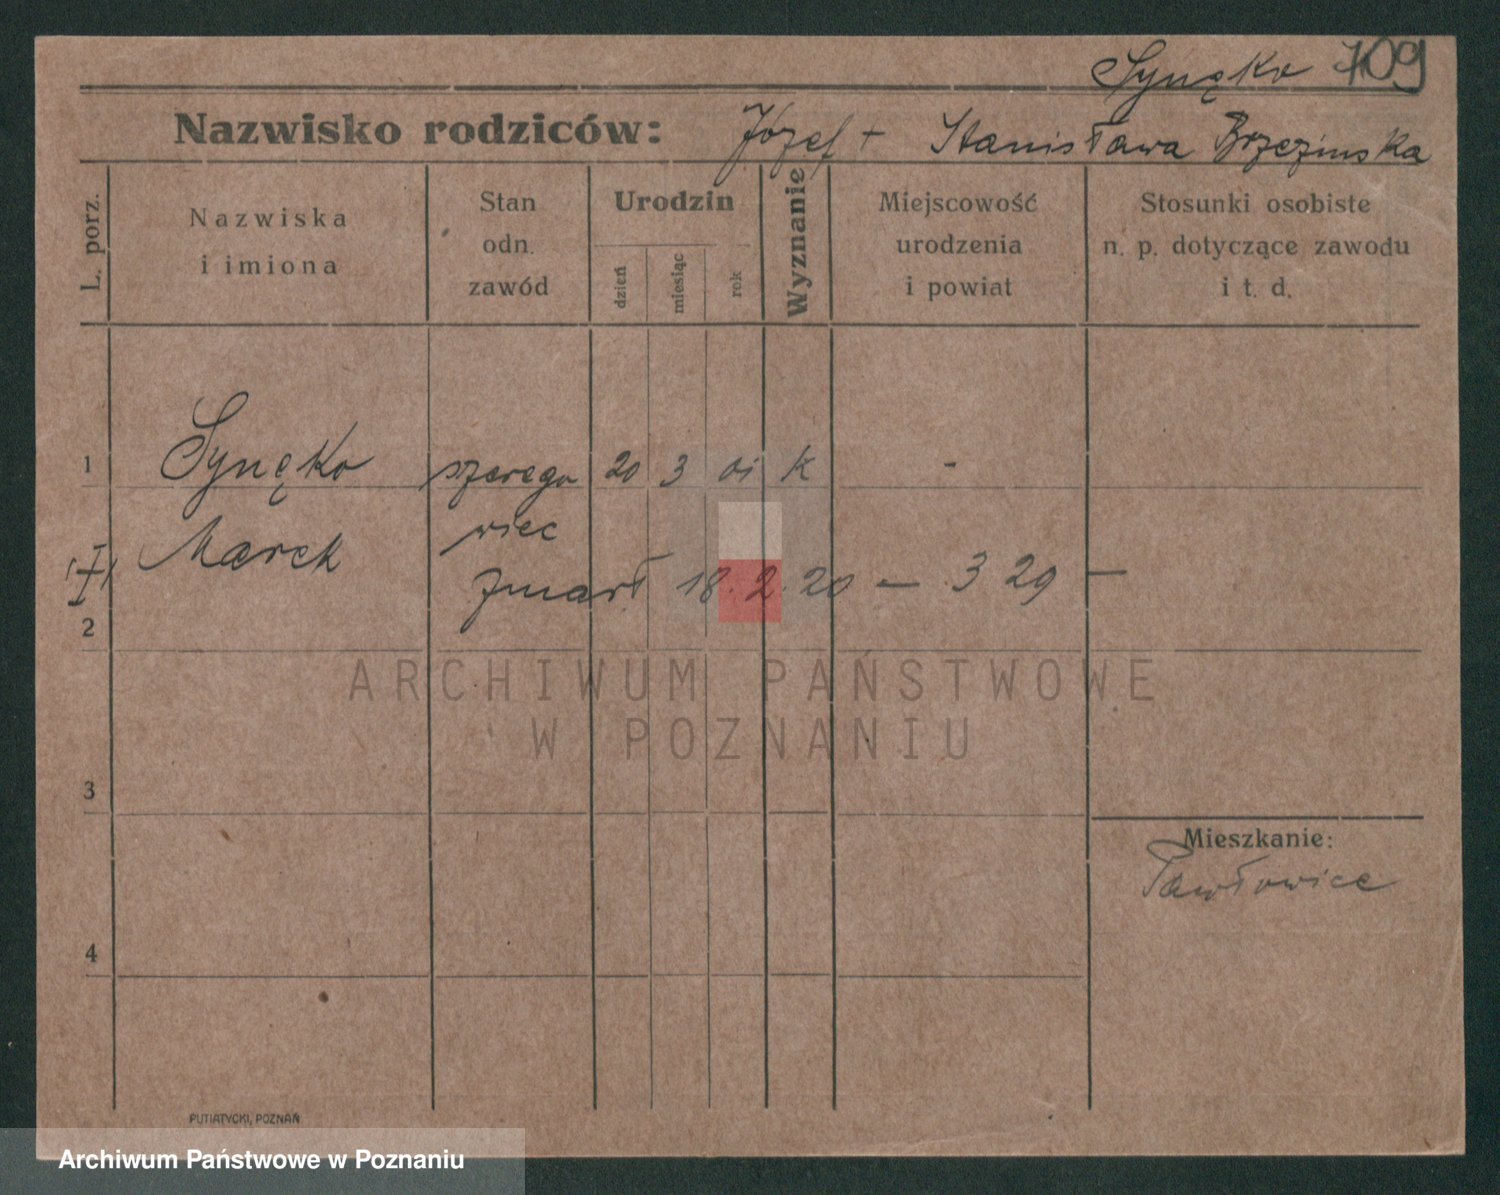 Synęko 709
Nazwisko rodziców: Józef + Stanisława Brzezinska
L. porz.
Nazwiska
i imiona
Stan
odn.
zawód
Urodzin
dzień
miesiąc
rok
Wyznanie
Miejscowość
urodzenia
i powiat
Stosunki osobiste
n. p. dotyczące zawodu
i t. d.
1 Synęko szerego 20 3 01 k -
Marek wiec
(I) zmarł 18.2.20 — 329 —
2
ARCHIWUM PAŃSTWOWE
W POZNANIU
3
Mieszkanie:
Pawłowice
4
PUTIATYCKI, POZNAŃ
Archiwum Państwowe w Poznaniu